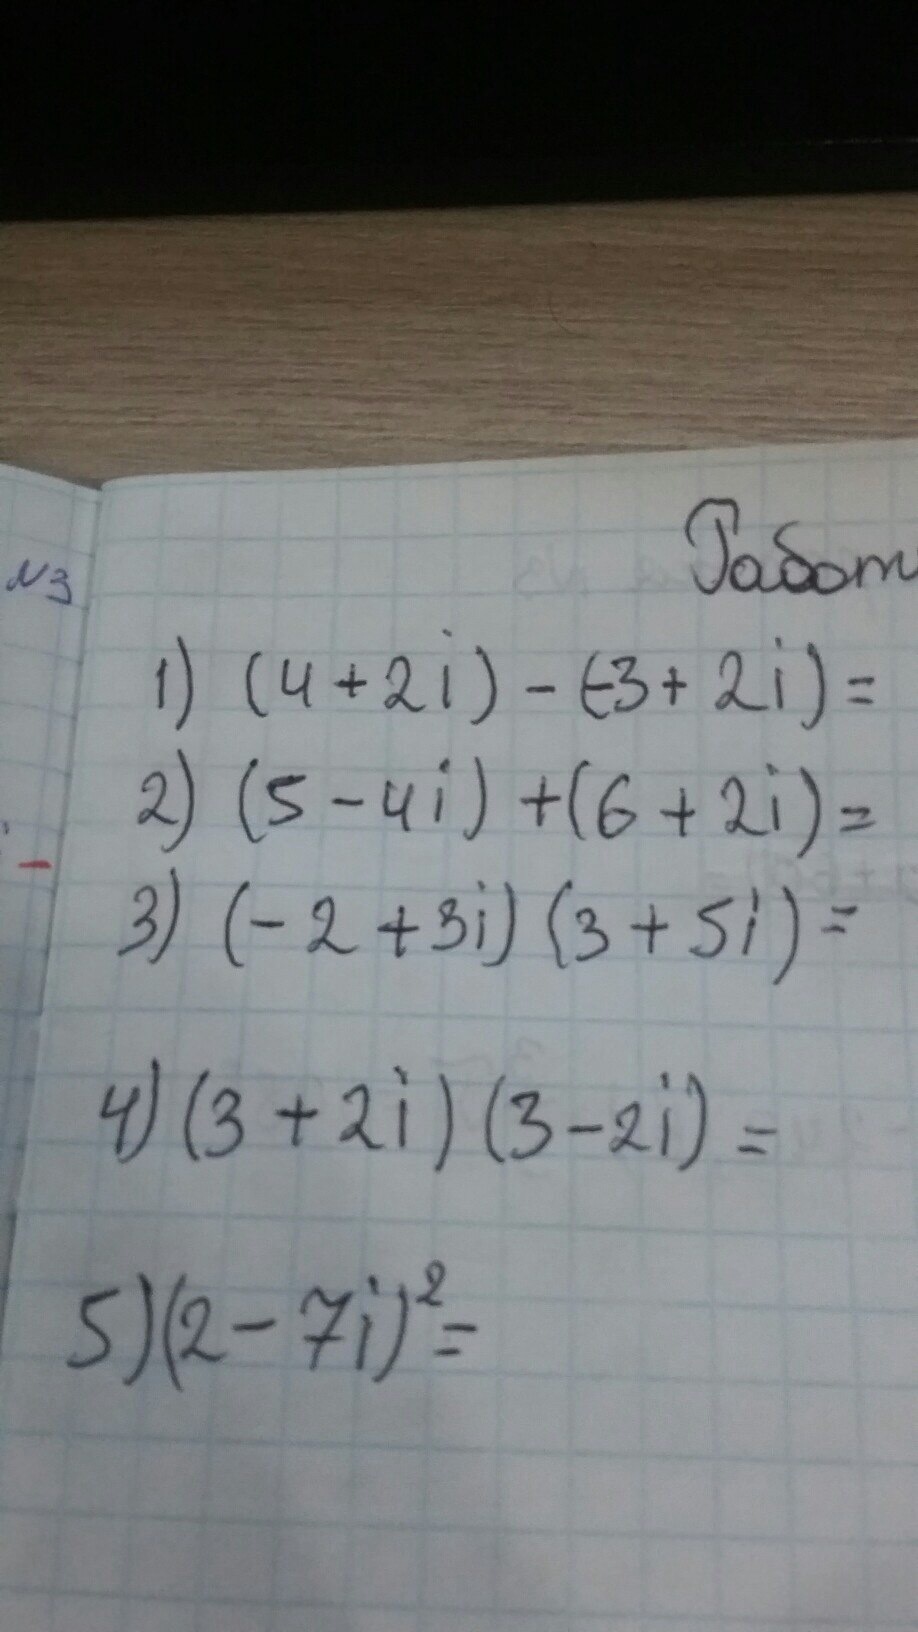 N3
Работ
1) (4 + 2i) - (-3 + 2i) =
2) (5 - 4i) + (6 + 2i) =
3) (-2 + 3i) (3 + 5i) =
4) (3 + 2i) (3 - 2i) =
5) (2 - 7i)² =